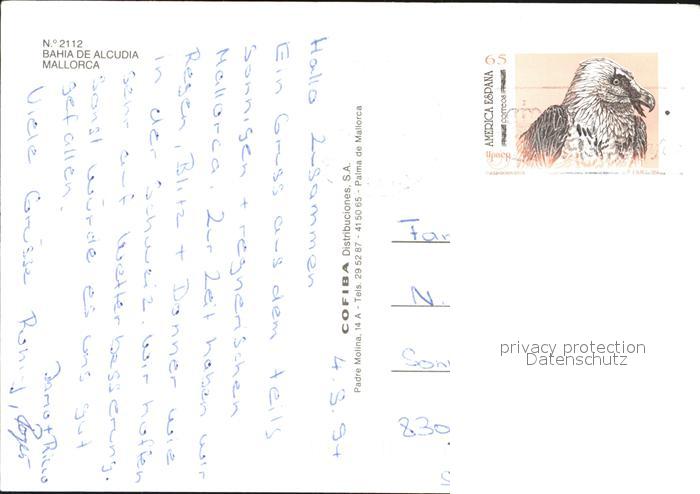 N.º 2112
BAHIA DE ALCUDIA
MALLORCA
4.9.94
Hallo Zusammen
Ein Gruss aus dem teils
sonnigen + regnerischen
Mallorca. Zur Zeit haben wir
Regen, Blitz + Donner wie
in der Schweiz. Wir hoffen
sehr auf Wetterbesserung.
Sonst würde es uns gut
gefallen.
Viele Grüsse
COFIBA Distribuciones, S.A.
Padre Molina, 14 A - Tels. 29 52 87 - 41 50 65 - Palma de Mallorca
65
AMERICA ESPAÑA
correos
Fam
Z.
Son
830
privacy protection
Datenschutz